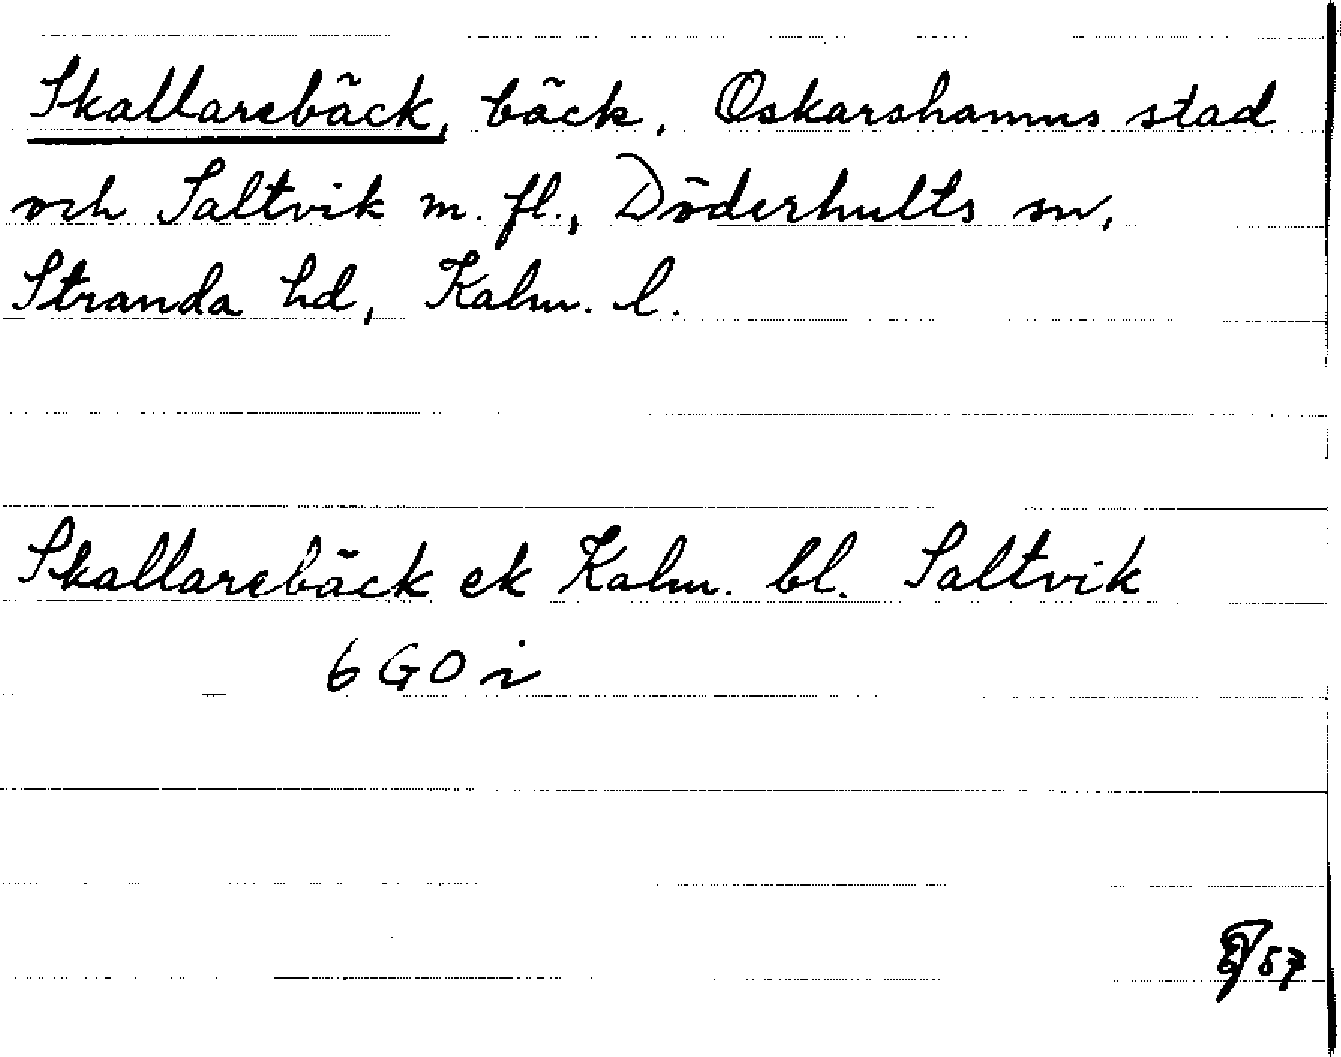 Skallarebäck, bäck, Oskarshamns stad
och Saltvik m. fl., Döderhults sn,
Stranda hd, Kalm. l.
Skallarebäck ek Kalm. bl. Saltvik
6 G O i
57